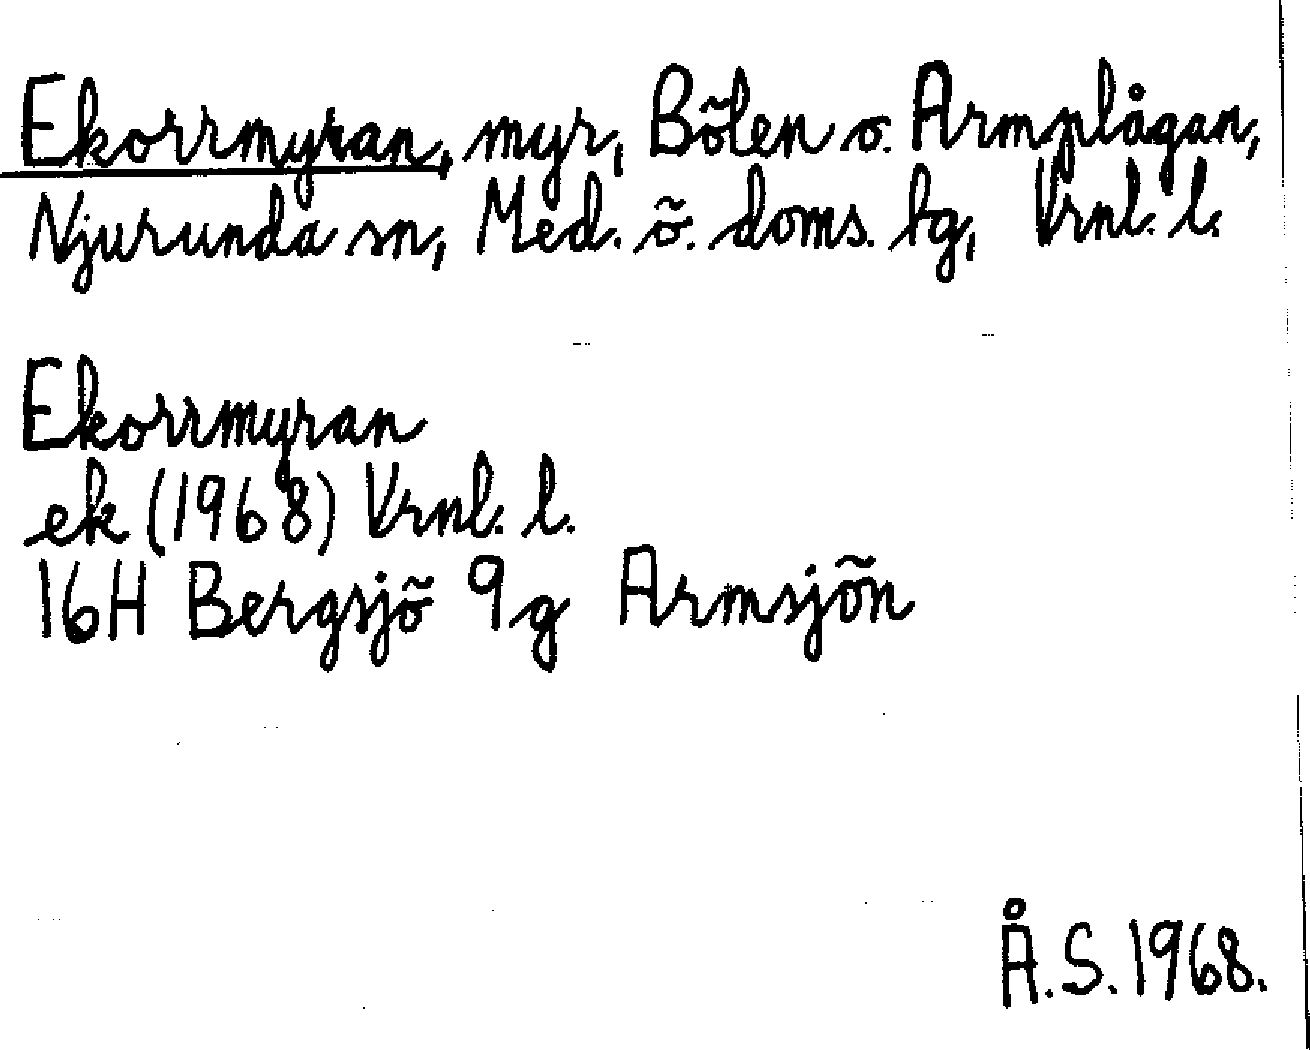 Ekorrmyran, myr, Bölen o. Armplågan,
Njurunda sn, Med. ö. doms. tg, Vrnl. l.
Ekorrmyran
ek (1968) Vrnl. l.
16H Bergsjö 9g Armsjön
Å.S. 1968.